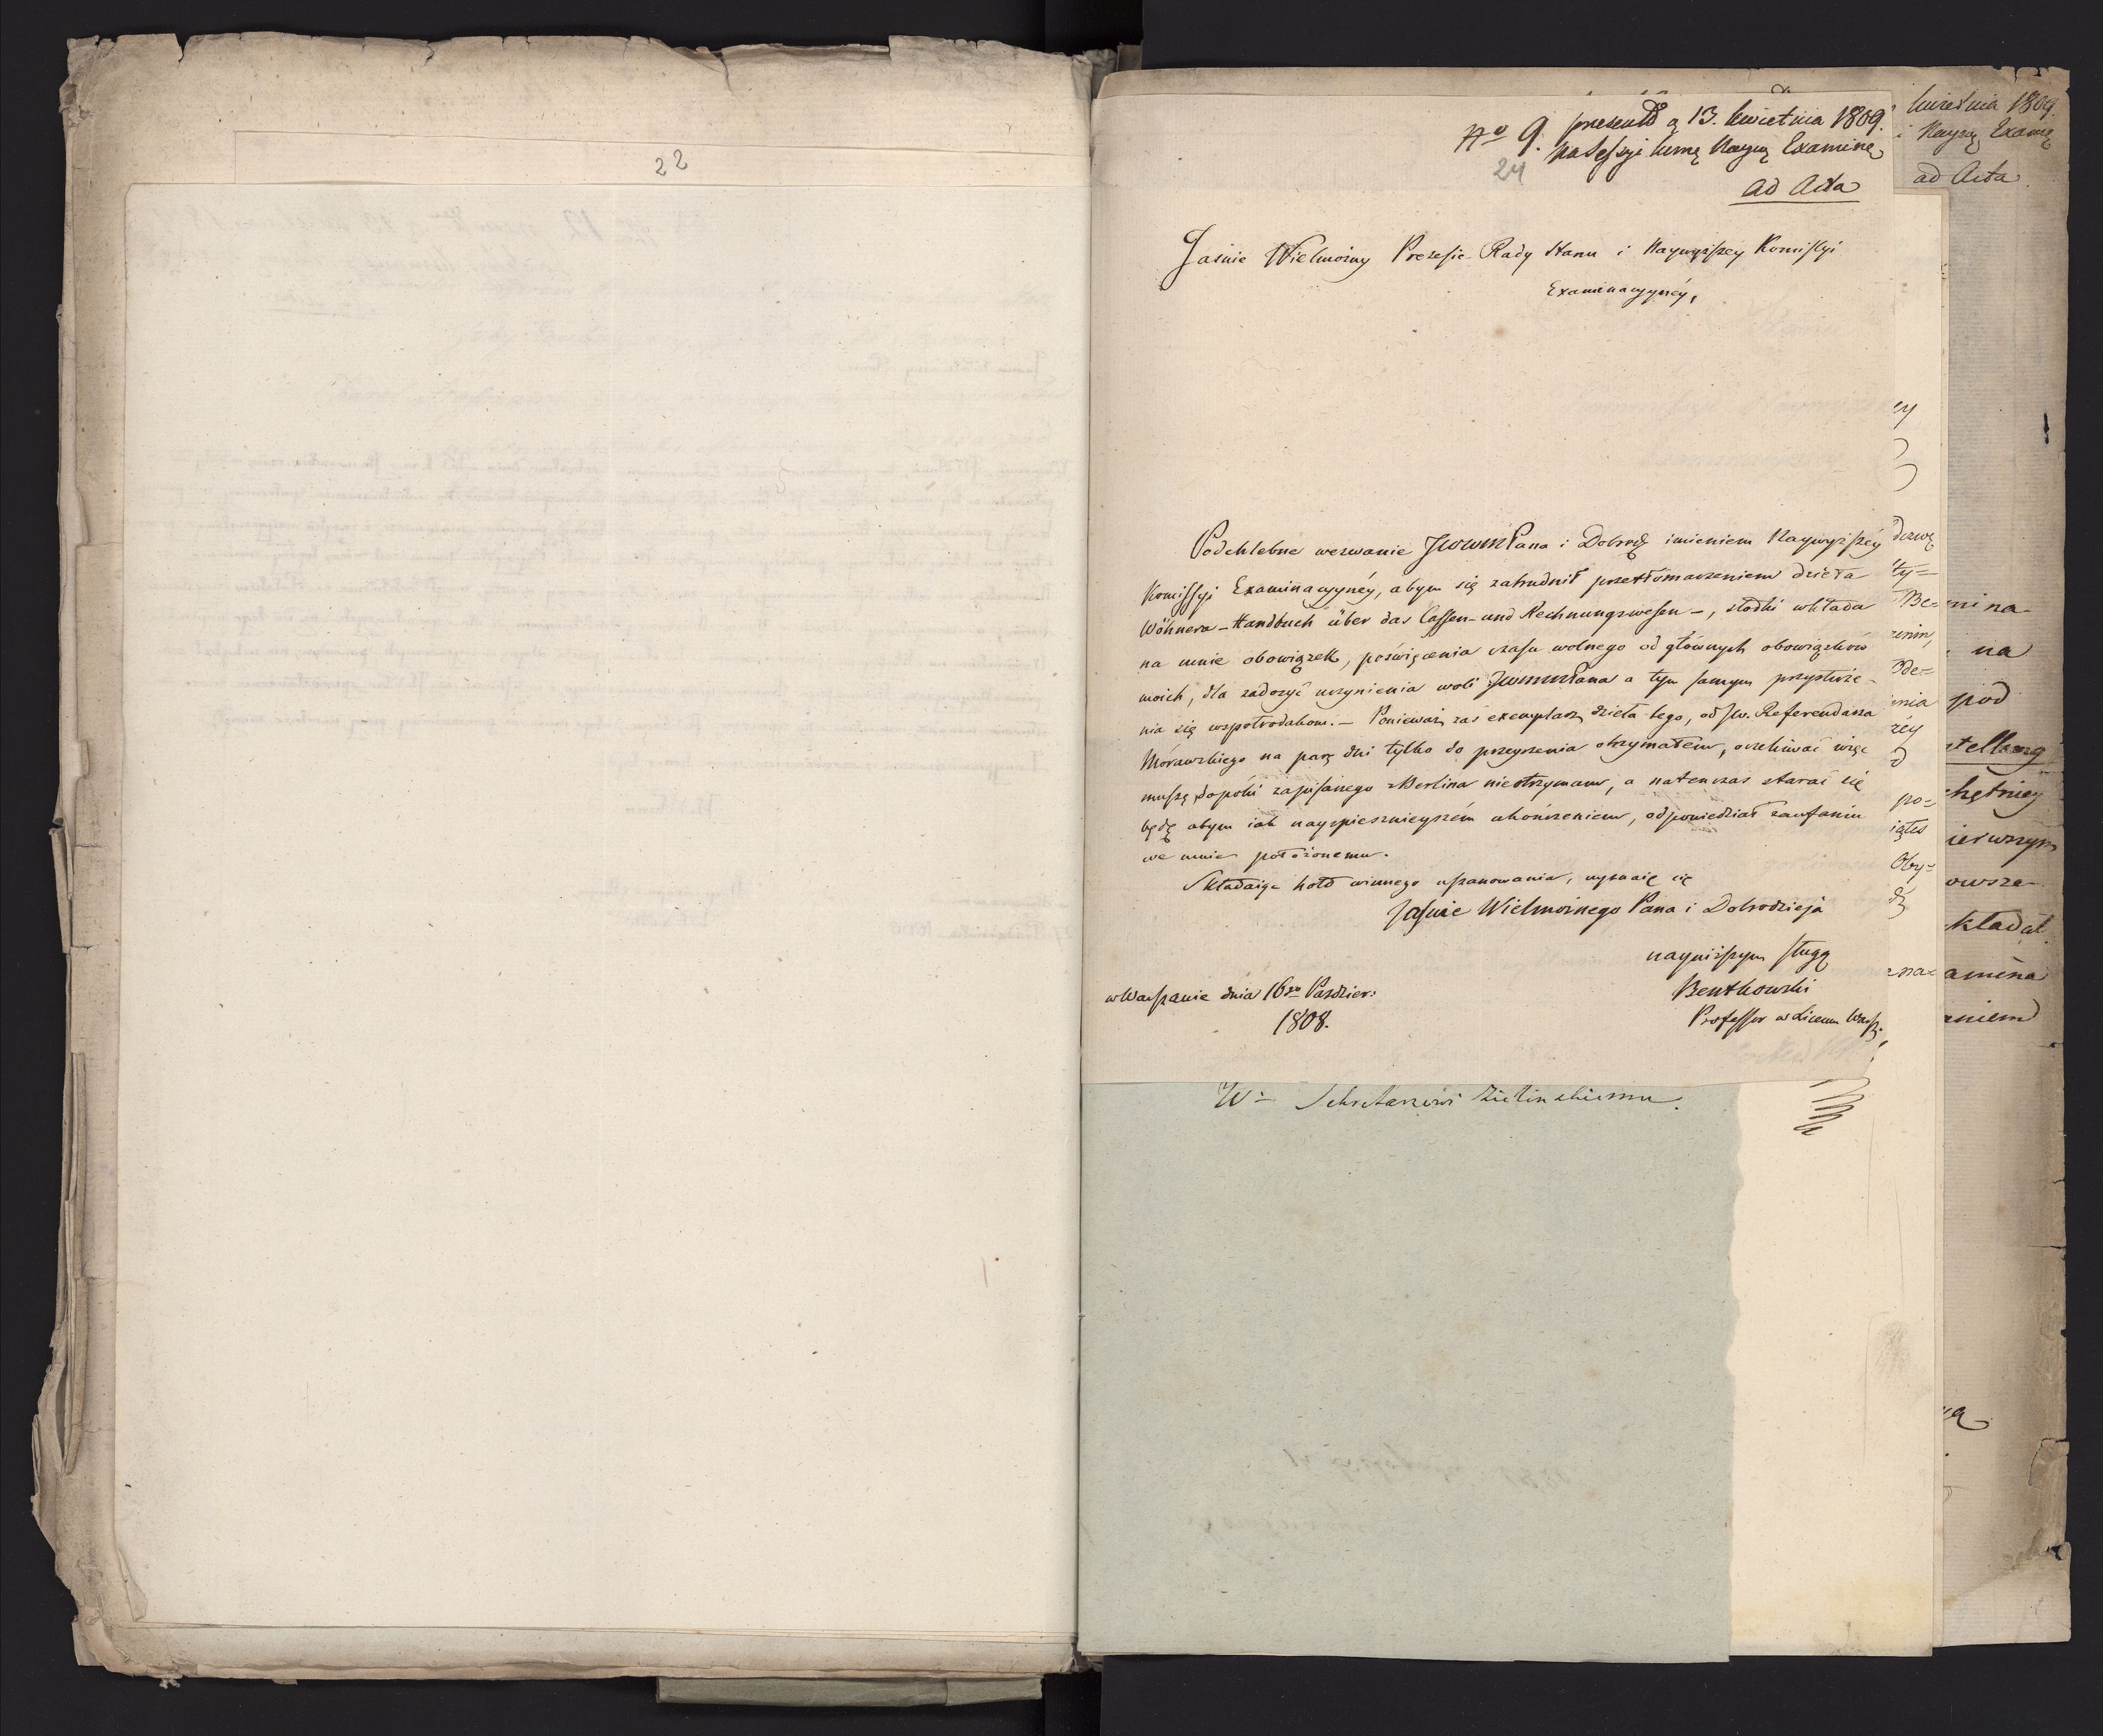 22
No 9. present d 13. kwietnia 1809.
na Sessyi Kmę Nayw Examinę
24
ad Acta
Jaśnie Wielmożny Prezesie Rady Stanu i Naywyższey Komissyi
Examinacyynéy,
Podchlebne wezwanie JWWMPana i Dobrodz imieniem Naywyższéy
Komissyi Examinacyynéy, abym się zatrudnił przetłómaczeniem dzieła
Wöhnera – Handbuch über das Cassen- und Rechnungswesen –, słodki wkłada
na mnie obowiązek, poświęcenia czasu wolnego od głównych obowiązków
moich, dla zadosyć uczynienia woli JWWMPana a tym samym przysłuże-
nia się współrodakom. – Ponieważ zaś exemplarz dzieła tego, od JW. Referendarza
Morawskiego na parę dni tylko do przeyrzenia otrzymałem, oczekiwać więc
muszę, dopóki zapisanego z Berlina nieotrzymam, a natenczas starać się
będę abym iak nayspiesznieyszém ukończeniem, odpowiedział zaufaniu
we mnie położonemu.
Składaiąc hołd winnego uszanowania, wyznaię się
Jaśnie Wielmożnego Pana i Dobrodzieja
nayniższym sługą
Bentkowski
Professor w Liceum Warsz.
w Warszawie dnia 16go Paździer:
1808.
W= Sekretarzowi Zielinskiemu.
kwietnia 1809
i Naywę Examę
ad Acta
mina
na
pod
stellung
chętniey
ierwszym
owsze
kładał
amina
aniem